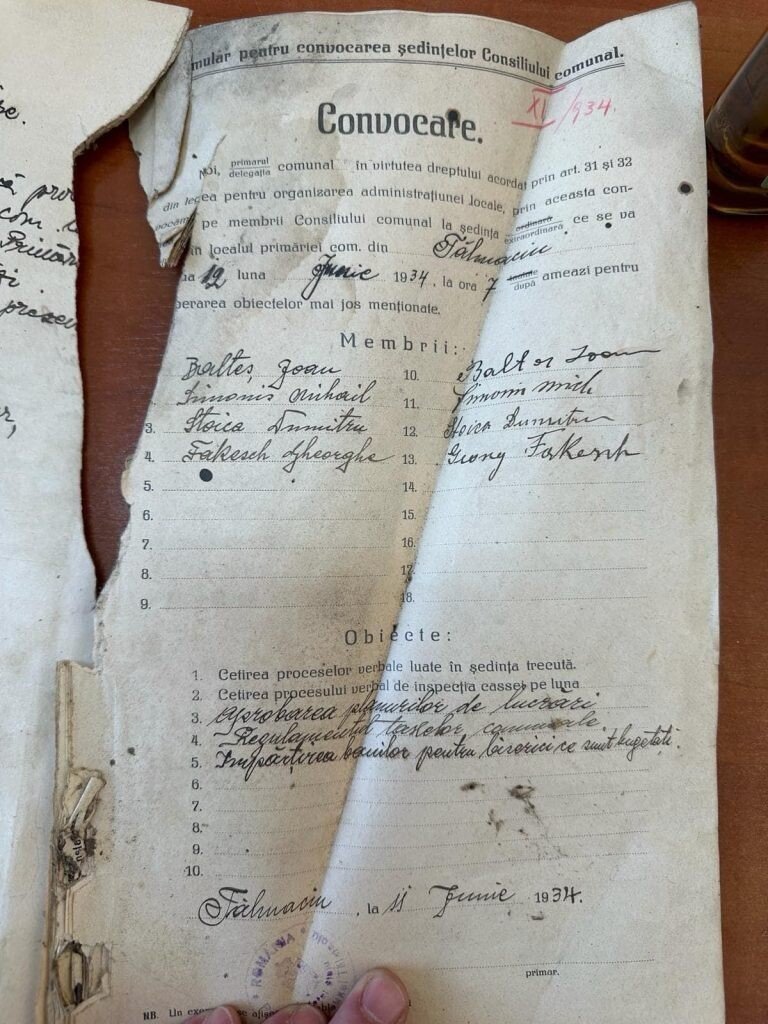 se.
mular pentru convocarea ședințelor Consiliului comunal.
XI/934.
Convocare.
Noi, primarul delegația comunal în virtutea dreptului acordat prin art. 31 și 32
din legea pentru organizarea administrațiunei locale, prin aceasta con-
vocăm pe membrii Consiliului comunal la ședința ordinară extraordinară ce se va
în localul primăriei com. din Tălmaciu
ua 12 luna Junie 1934, la ora 7 înainte după ameazi pentru
perarea obiectelor mai jos menționate.
Membrii:
Baltes Joan 10. Baltes Joan
Simonis Mihail 11. Simonis Mich
3. Stoica Dumitru 12. Stoica Dumitru
4. Fakesch Gheorghe 13. Georg Fakesch
5. 14.
6. 15.
7. 16.
8. 17.
9. 18.
Obiecte:
1. Cetirea proceselor verbale luate în ședința trecută.
2. Cetirea procesului verbal de inspecția cassei pe luna
3. Aprobarea planurilor de lucrări
4. Regulamentul taxelor comunale
5. Împărțirea banilor pentru biserici ce sunt bugetați.
6.
7.
8.
9.
10.
Tălmaciu, la 11 Junie 1934.
ROMÂNIA
primar.
NB. Un